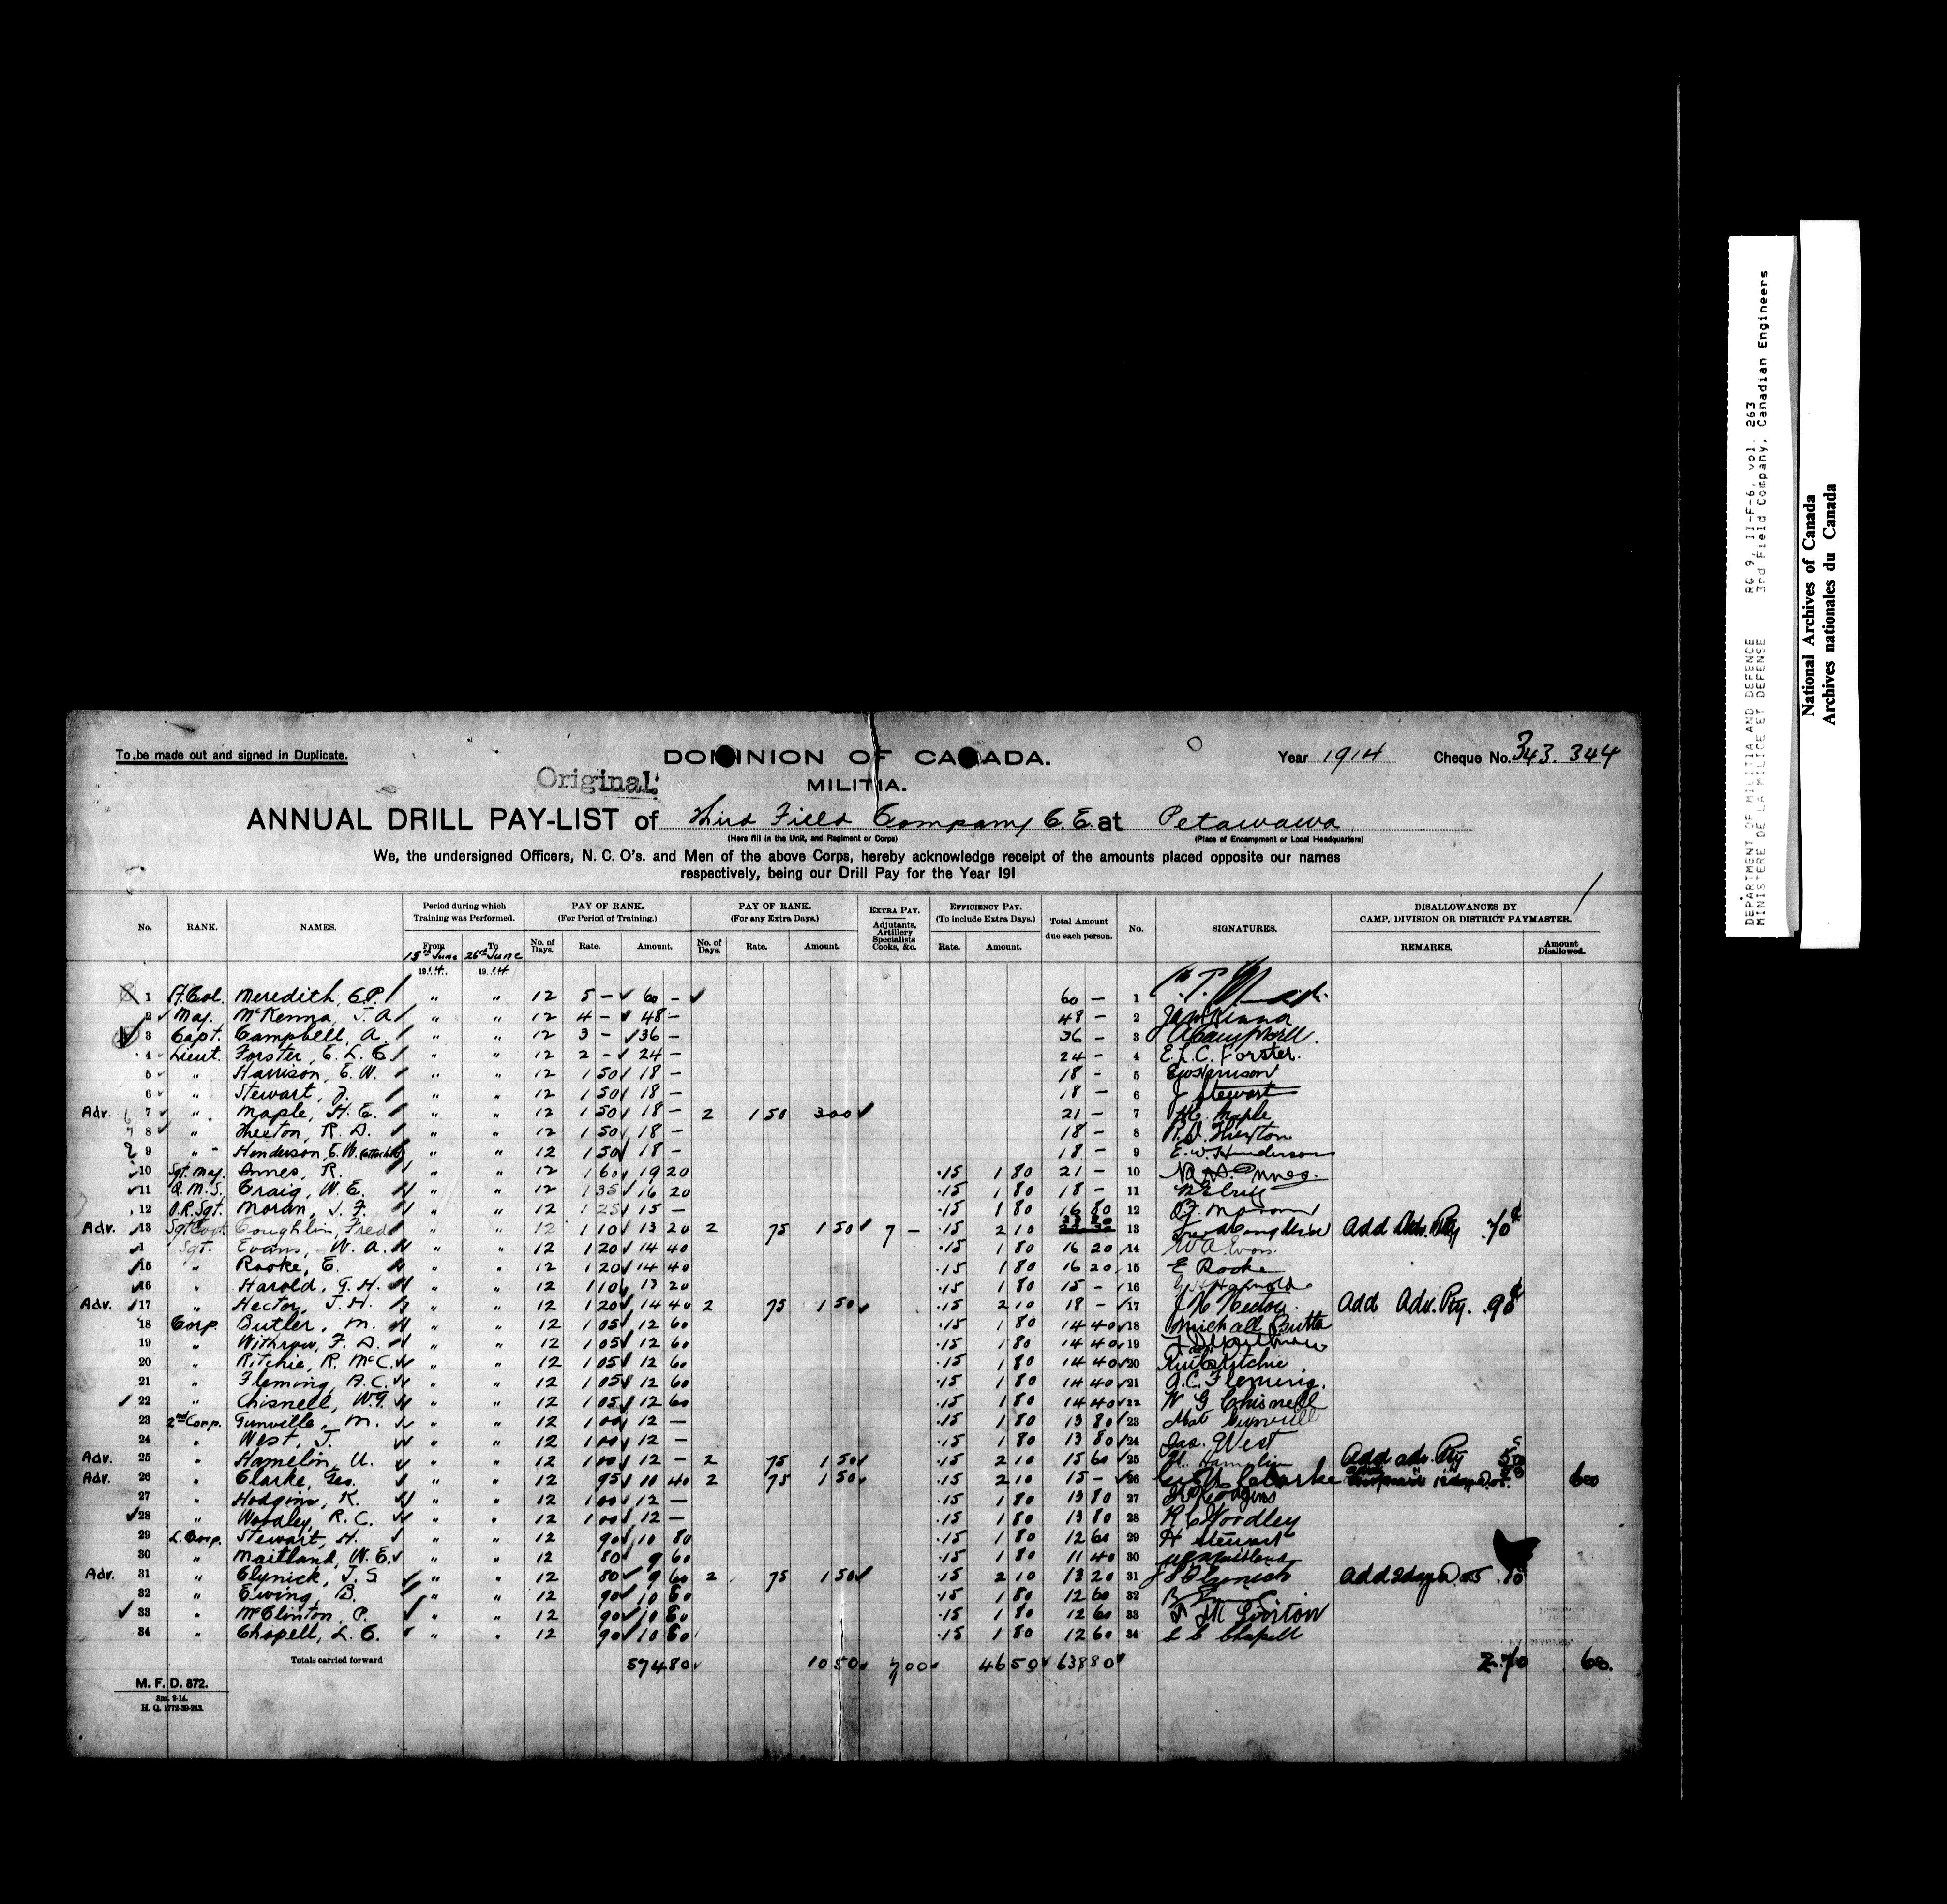 To be made out and signed in Duplicate.
DOMINION OF CANADA.
Year 1914 Cheque No. 343. 344
Original.
MILITIA.
ANNUAL DRILL PAY-LIST of Third Field Company C.E. at Petawawa
(Here fill in the Unit, and Regiment or Corps) (Place of Encampment or Local Headquarters)
We, the undersigned Officers, N. C. O's. and Men of the above Corps, hereby acknowledge receipt of the amounts placed opposite our names
respectively, being our Drill Pay for the Year 191
No. RANK. NAMES. Period during which Training was Performed. PAY OF RANK. (For Period of Training.) PAY OF RANK. (For any Extra Days.) EXTRA PAY. Adjutants, Artillery Specialists Cooks, &c. EFFICIENCY PAY. (To include Extra Days.) Total Amount due each person. No. SIGNATURES. DISALLOWANCES BY CAMP, DIVISION OR DISTRICT PAYMASTER.
From To No. of Days. Rate. Amount. No. of Days. Rate. Amount. Rate. Amount. REMARKS. Amount Disallowed.
15th June 1914. 26th June 1914
1 Lt. Col. Meredith, C.P. " " 12 5 - 60 - 60 - 1
2 Maj. McKenna, J. A. " " 12 4 - 48 - 48 - 2 JaMcKenna
3 Capt. Campbell, A. " " 12 3 - 36 - 36 - 3 ACampbell.
4 Lieut. Forster, E. L. C. " " 12 2 - 24 - 24 - 4 E. L. C. Forster.
5 " Harrison, E. W. " " 12 1 50 18 - 18 - 5 EWHarrison
6 " Stewart, J. " " 12 1 50 18 - 18 - 6 J Stewart
Adv. 7 " Maple, H. E. " " 12 1 50 18 - 2 1 50 3 00 21 - 7 H.E. Maple
8 " Thexton, R. D. " " 12 1 50 18 - 18 - 8 R.D. Thexton
9 " Henderson, E. W. (attached) " " 12 1 50 18 - 18 - 9 E. W. Henderson
10 Sgt. Maj. Innes, R. " " 12 1 60 19 20 .15 1 80 21 - 10
11 Q. M. S. Craig, W. E. " " 12 1 35 16 20 .15 1 80 18 - 11 WECraig
12 O.R. Sgt. Moran, J. F. " " 12 1 25 15 - .15 1 80 16 80 12 J. Moran
Adv. 13 Sgt. Cook Coughlin, Fred " " 12 1 10 13 20 2 75 1 50 7 - .15 2 10 13 Fred Coughlin Add Adv. Pty .70¢
14 Sgt. Evans, W. A. " " 12 1 20 14 40 .15 1 80 16 20 14 W A Evans
15 " Rooke, E. " " 12 1 20 14 40 .15 1 80 16 20 15 E Rooke
16 " Harold, G. H. " " 12 1 10 13 20 .15 1 80 15 - 16 G H Harold
Adv. 17 " Hector, J. H. " " 12 1 20 14 40 2 75 1 50 .15 2 10 18 - 17 J H Hector. Add Adv. Pty. .90¢
18 Corp. Butler, M. " " 12 1 05 12 60 .15 1 80 14 40 18 Michall Butler
19 " Withrow, F. D. " " 12 1 05 12 60 .15 1 80 14 40 19 F D Withrow
20 " Ritchie, R. McC. " " 12 1 05 12 60 .15 1 80 14 40 20 RMcCRitchie
21 " Fleming, A. C. " " 12 1 05 12 60 .15 1 80 14 40 21 A. C. Fleming.
22 " Chisnell, W.G. " " 12 1 05 12 60 .15 1 80 14 40 22 W G Chisnell
23 2nd Corp. Gunville, M. " " 12 1 00 12 - .15 1 80 13 80 23 Mat Gunville
24 " West, J. " " 12 1 00 12 - .15 1 80 13 80 24 Jas. West
Adv. 25 " Hamelin, U. " " 12 1 00 12 - 2 75 1 50 .15 2 10 15 60 25 U. Hamelin Add adv. Pty 50
Adv. 26 " Clarke, Geo. " " 12 95 10 40 2 75 1 50 .15 2 10 15 - 26 Clarke 60
27 " Hodgins, K. " " 12 1 00 12 - .15 1 80 13 80 27 K Hodgins
28 " Woodley, R. C. " " 12 1 00 12 - .15 1 80 13 80 28 R C Woodley
29 L. Corp. Stewart, H. " " 12 90 10 80 .15 1 80 12 60 29 H Stewart
30 " Maitland, W. E. " " 12 80 9 60 .15 1 80 11 40 30 WEMaitland
Adv. 31 " Clynick, J. S. " " 12 80 9 60 2 75 1 50 .15 2 10 13 20 31 J S Clynick Add 2 days @ .05 .10
32 " Ewing, B. " " 12 90 10 80 .15 1 80 12 60 32 B Ewing
33 " McClinton, P. " " 12 90 10 80 .15 1 80 12 60 33
34 " Chapell, L. C. " " 12 90 10 80 .15 1 80 12 60 34 L C Chapell
Totals carried forward 574 80 10 50 7 00 46 50 638 80 2.70 60.
M. F. D. 872.
5m. 2-14.
H. Q. 1772-39-243.
DEPARTMENT OF MILITIA AND DEFENCE RG 9, II-F-6, vol. 263
MINISTERE DE LA MILICE ET DEFENSE 3rd Field Company, Canadian Engineers
National Archives of Canada
Archives nationales du Canada